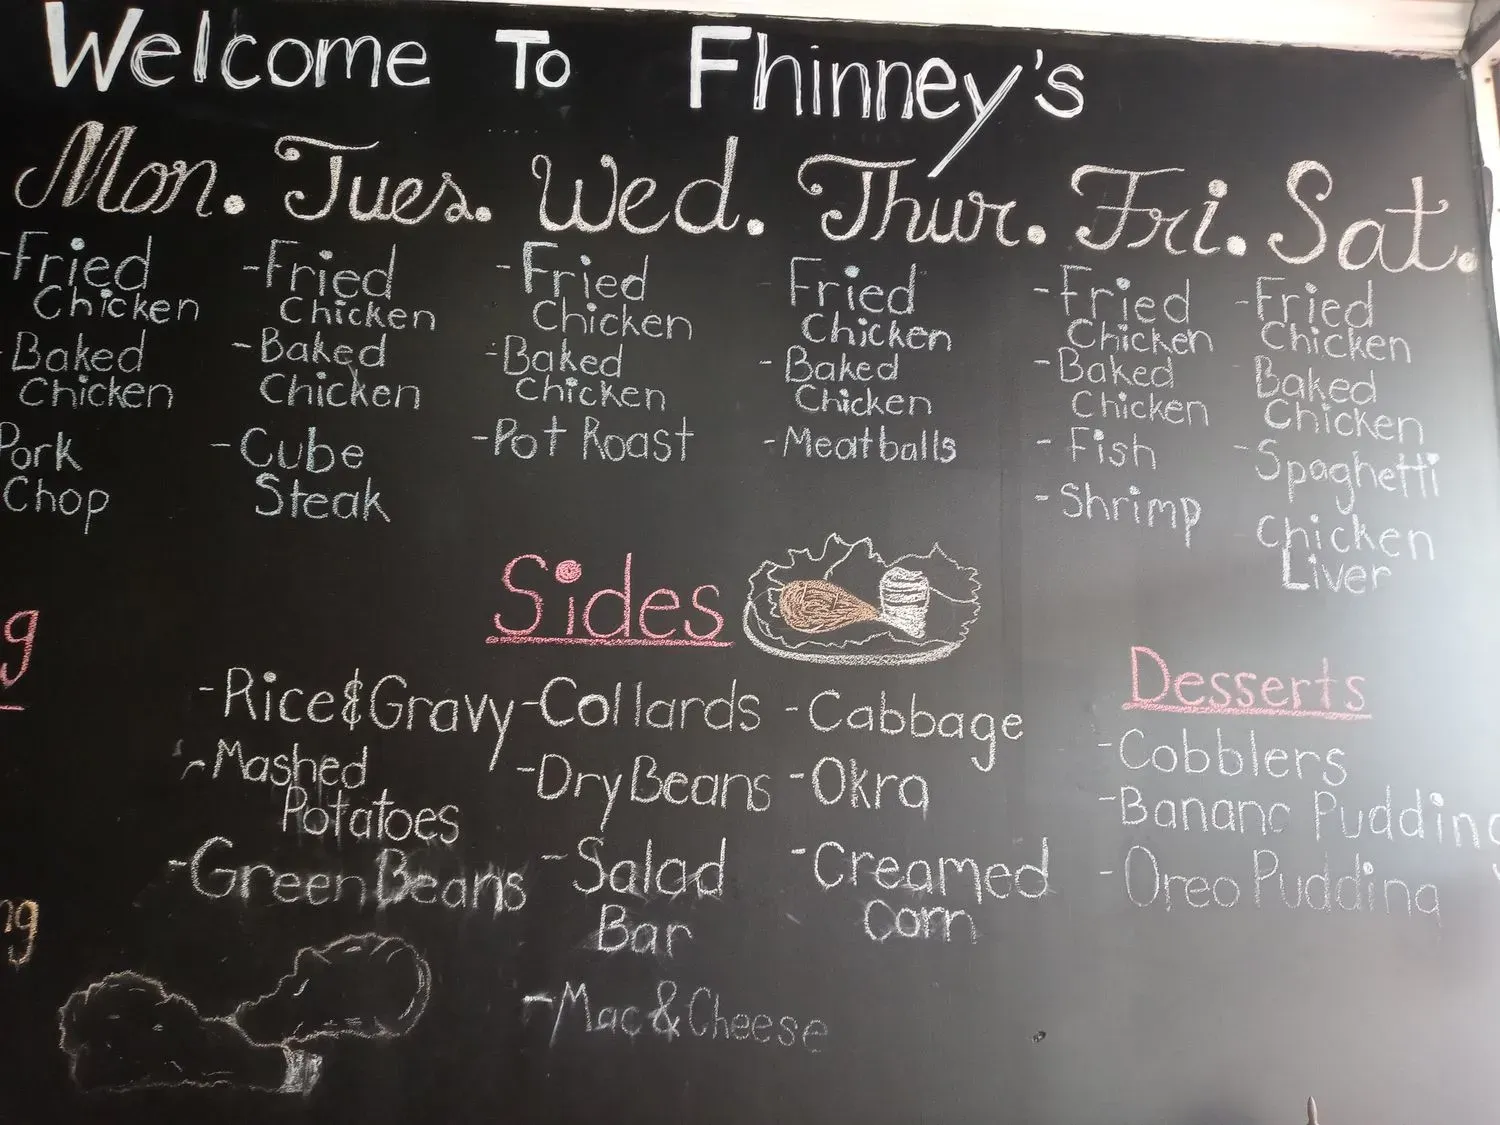 Welcome To Fhinney's
Mon.
-Fried
Chicken
-Baked
Chicken
Pork
Chop
Tues.
-Fried
Chicken
-Baked
Chicken
-Cube
Steak
Wed.
-Fried
Chicken
-Baked
Chicken
-Pot Roast
Thur.
-Fried
Chicken
-Baked
Chicken
-Meatballs
Fri.
-Fried
Chicken
-Baked
Chicken
-Fish
-Shrimp
Sat.
-Fried
Chicken
-Baked
Chicken
-Spaghetti
Chicken
Liver
Sides
-Rice & Gravy
-Mashed
Potatoes
-Green Beans
-Collards
-Dry Beans
-Salad
Bar
-Mac & Cheese
-Cabbage
-Okra
-Creamed
Corn
Desserts
-Cobblers
-Banana Pudding
-Oreo Pudding